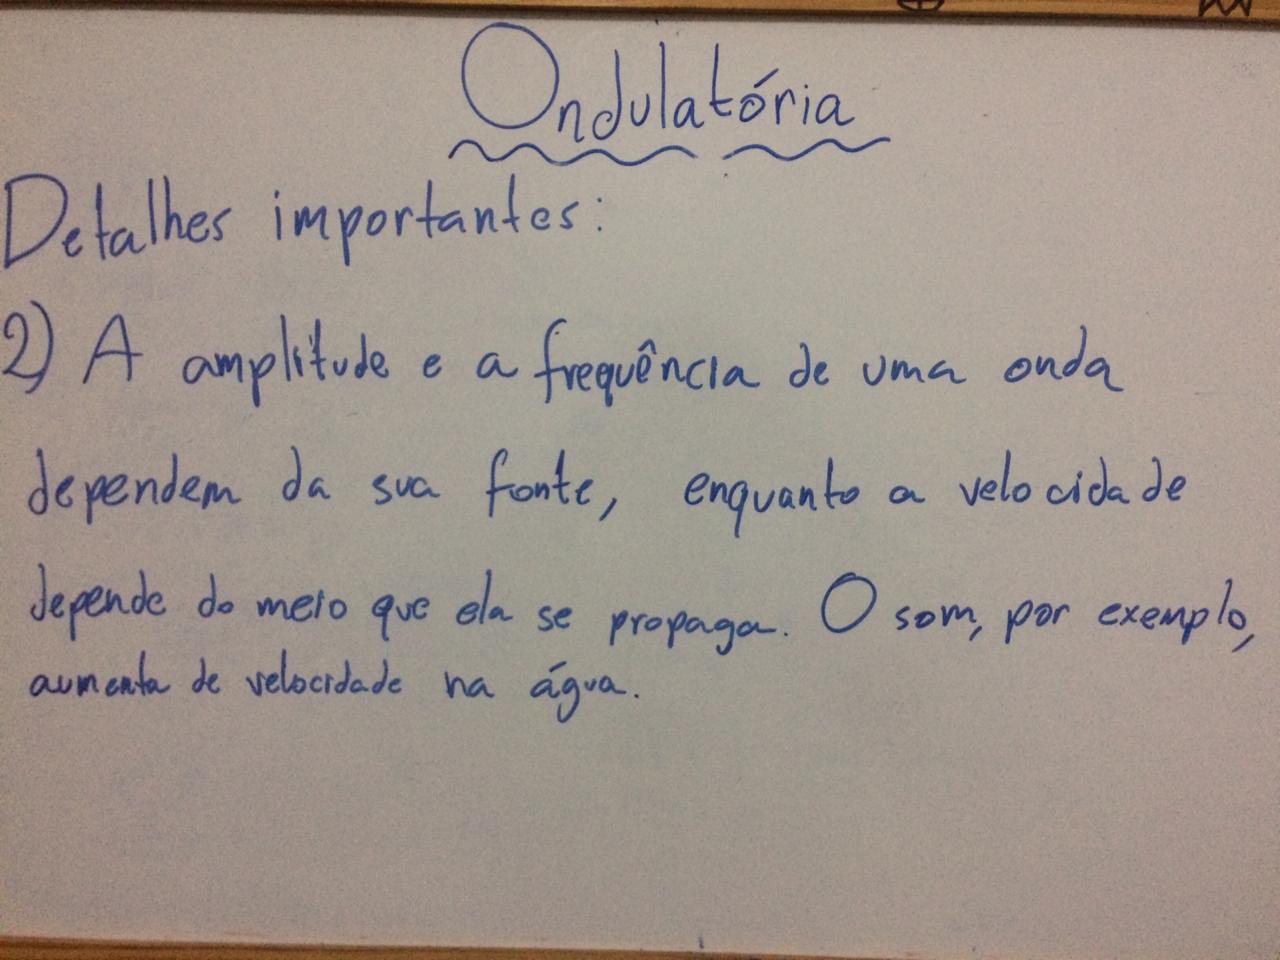 Ondulatória
Detalhes importantes:
2) A amplitude e a frequência de uma onda
dependem da sua fonte, enquanto a velocidade
depende do meio que ela se propaga. O som, por exemplo,
aumenta de velocidade na água.